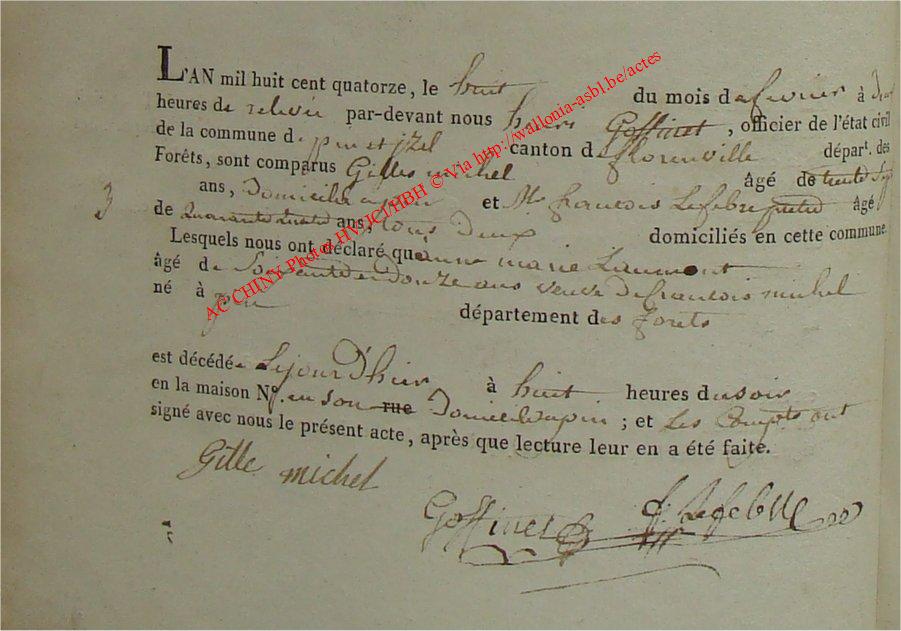 L'AN mil huit cent quatorze, le huit du mois de fevrier à
heures de relevée par-devant nous Goffinet, officier de l'état civil
de la commune de pin et jzel canton de florenville départ. des
Forêts, sont comparus Gilles michel âgé de trente Sept
3
ans, Domicilié a pin et Mr francois Lefebre âgé
de Quarante quatre ans, tous deux domiciliés en cette commune.
Lesquels nous ont déclaré que anne marie Laumont
âgé de Soixante et Douze ans veuve De francois michel
né à pin département des forets
est décédé Le jour D'hier à huit heures du soir
en la maison N°. en son rue Domicil a pin ; et Les Compts ont
signé avec nous le présent acte, après que lecture leur en a été faite.
Gille michel
Goffinet f. Lefebre
AC CHINY Photos HVJCJ/HBH © Via http://wallonia-asbl.be/actes